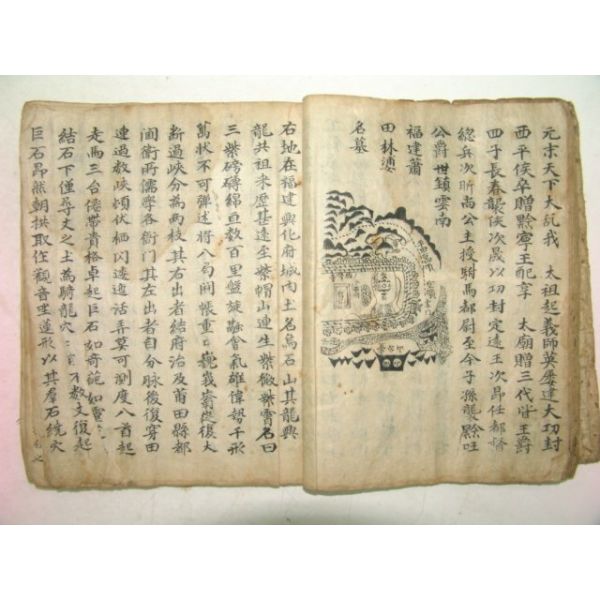 元末天下大亂我 太祖起義師英屡建大功封
西平侯卒贈黔寧王配享 太廟贈三代皆王爵
四子長春襲侯次晟以功封定遠王次昂任都督
總兵次昕尚公主授駙馬都尉至今子孫襲黔
公爵世鎮雲南
福建莆
田林婆
名墓
右地在福建興化府城内土名烏石山其龍興
龍共祖來歷甚遠至紫帽山連生紫微紫霄名曰
三紫磅礡綿亘数百里盤旋融會氣雄偉勢千形
萬状不可殫述將入局開帳重巍峩嵒嵒復大
断過峡分為兩枝其右出者結府治及莆田縣都
閫衛所儒學各衙門其左出者自分脉後復穿田
連過数峡頓伏栖閃逶迤活弄莫可測度入首起
走馬三台倦帶貴格卓起巨石如奇龍如
結石下僅尋丈之土為騎龍穴 数丈復起
巨石昻然朝拱取作觀音坐蓮形以其羣石繞穴